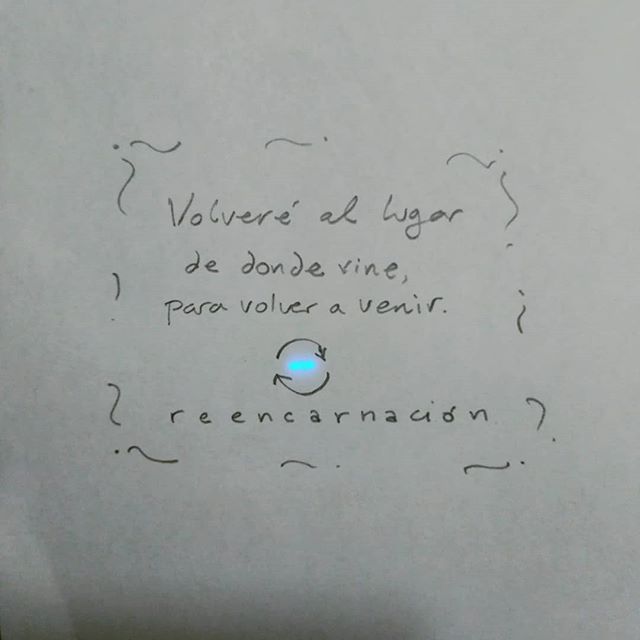 Volveré al lugar
de donde vine,
para volver a venir.
reencarnación